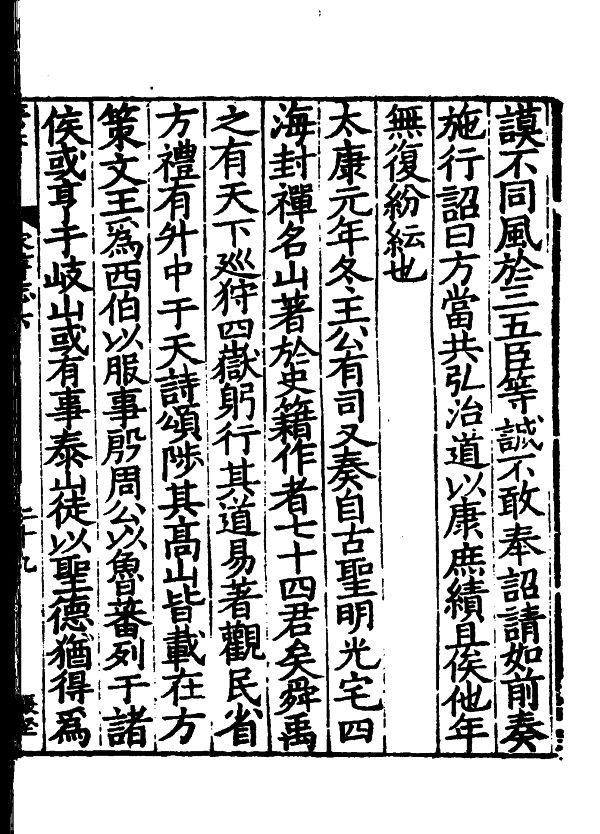 謨不同風於三五臣等誠不敢奉詔請如前奏
施行詔曰方當共弘治道以康庶績且俟他年
無復紛紜也
太康元年冬王公有司又奏自古聖明光宅四
海封禪名山著於史籍作者七十四君矣舜禹
之有天下巡狩四嶽躬行其道易著觀民省
方禮有升中于天詩頌陟其高山皆載在方
策文王爲西伯以服事殷周公以魯蕃列于諸
侯或亨于岐山或有事泰山徒以聖德猶得爲
宋書志六
二十九